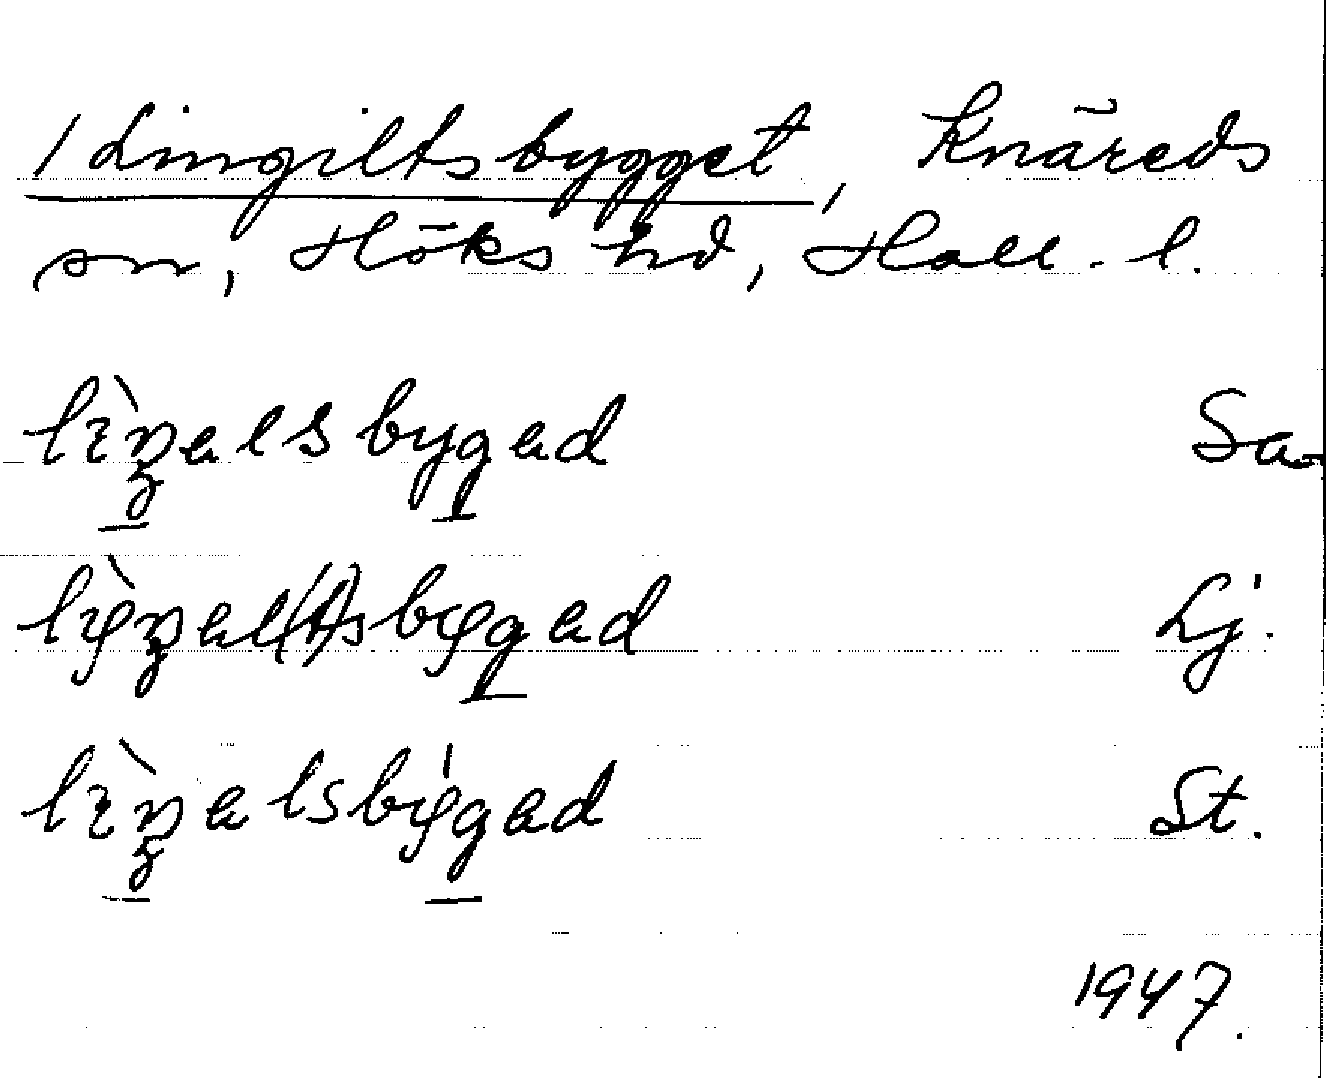 / Lingiltsbygget, Knäreds
sn, Höks hd, Hall. l.
lìŋalsbygad Sa.
lìŋal(t)sbygad Lj.
lìŋalsbýgad St.
1947.